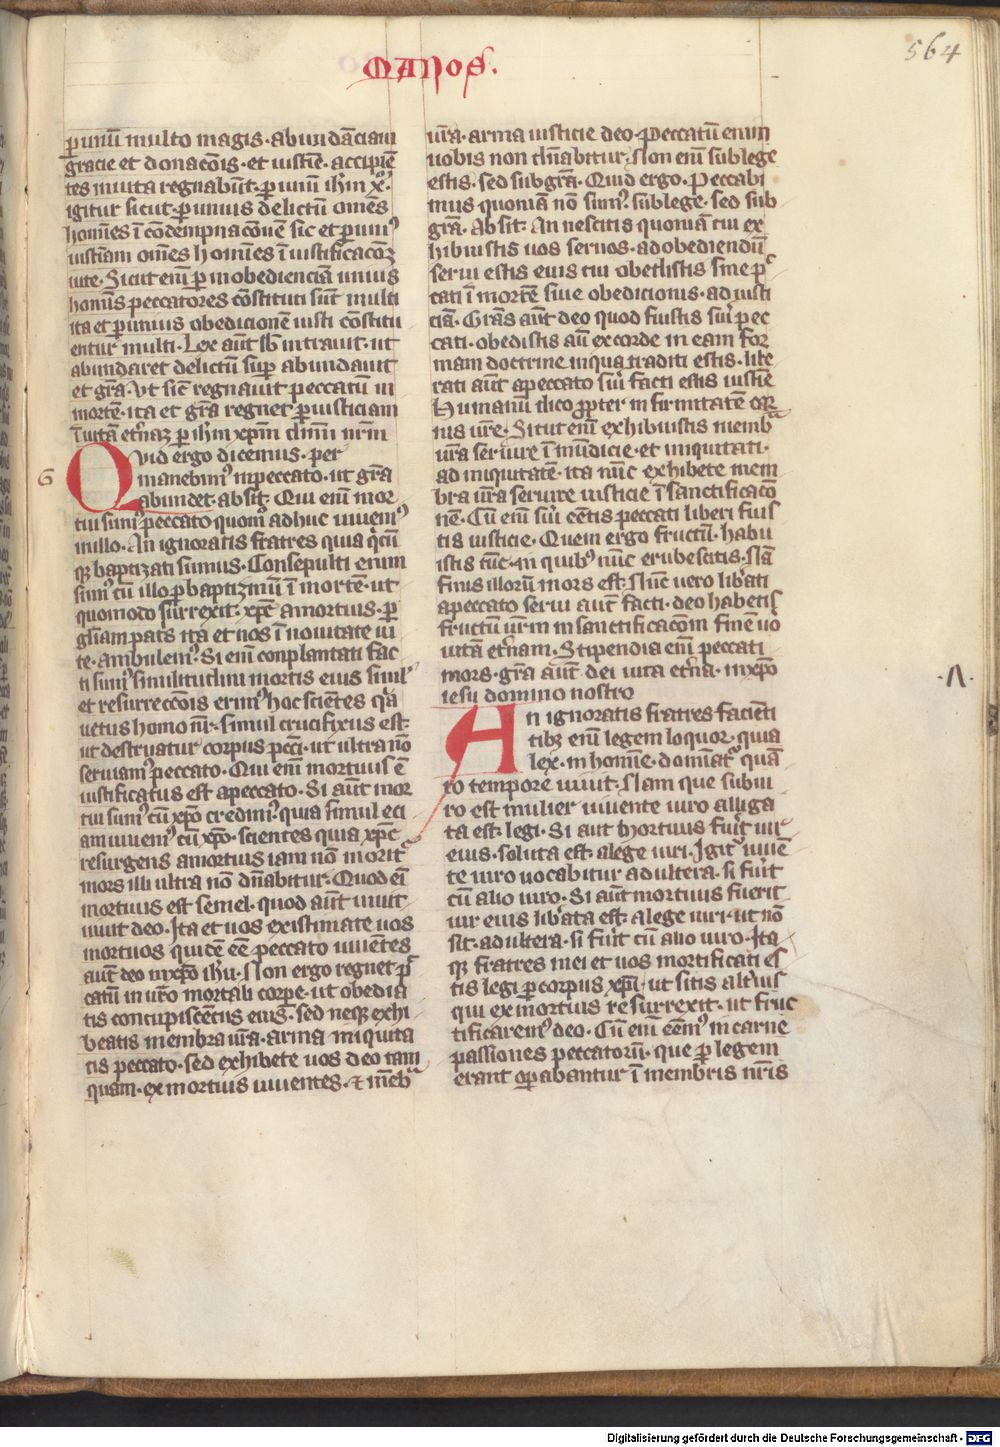 MANOS.
564
p unū multo magis· abundāciam
gracie et donacōis· et iustīe· accipiē
tes in uita regnabūt· p unū ihm xp̄·
igitur sicut· p unius delictū omēs
homīes ī cōdempnacōnē sic et p unī⁹
iustiam omēs homīes ī iustificacōꝫ
uite· Sicut enī p inobedienciā unius
homīs peccatores cōstituti sūt multi
ita et p unius obedicionē iusti cōstitu
entur multi· Lex aūt sb intrauit· ut
abundaret delictū sup abundauit
et grā· Vt sic regnauit peccatū in
mortē· ita et grā regnet p iusticiam
ī uitā etnaꝫ p ihm xpm dnm nrm
6
Quid ergo dicemus· per
manebim⁹ in peccato· ut grā
abundet· absit· Qui enī mor
tui sum⁹ peccato quom̄ adhuc uiuem⁹
in illo· An ignoratis fratres quia qcū
qꝫ baptizati sumus· Consepulti enim
sum⁹ cū illo p baptizmū ī mortē· ut
quomodo surrexit· xpc amortuis· p
gliam patis ita et nos ī nouitate ui
te· ambulem⁹· Si enī conplantati fac
ti sum⁹ similitudini mortis eius simul
et resurreccōis erim⁹ hoc scientes qa
uetus homo nr· simul crucifixus est·
ut destruatur corpus pcci· ut ultra nō
seruiam⁹ peccato· Qui enī mortuus ē
iustificatus est apeccato· Si aūt mor
tui sum⁹ cū xpo credim⁹ quia simul eci
am uiuem⁹ cū xpo· scientes quia xpc
resurgens amortuis iam nō morit
mors illi ultra nō dnabitur· Quod eī
mortuus est semel· quod aūt uiuit
uiuit deo· Ita et uos existimate uos
mortuos quidē eē peccato uiuentes
aut deo in xpo ihu· Non ergo regnet p
catū in uro mortali corpe· ut obedia
tis concupiscētiis eius· sed neqꝫ exhi
beatis membra ura· arma iniquita
tis peccato· sed exhibete uos deo tam
quam· ex mortuis uiuentes· et mēb
ura· arma iusticie deo· Peccatū enim
uobis non dnabitur· Non enī sublege
estis· sed sub grā· Quid ergo· Peccabi
mus quoniā nō sum⁹ sublege· sed sub
grā· Absit· An nescitis quoniā cui ex
hibuistis uos seruos· ad obediendū
serui estis eius cui obedistis siue pc
cati ī mortē siue obedicionis· ad iusti
ciā· Grās aūt deo quod fuistis sui pec
cati· obedistis aū ex corde in eam for
mam doctrine in qua traditi estis· libe
rati aūt apeccato sui facti estis iustie
Humanū dico ppter in firmitatē car
nis ure· Sicut enī exhibuistis memb
ura seruire ī mūdicie· et iniquitati·
ad iniquitatē· ita nūc exhibete mem
bra ura seruire iusticie ī sanctificacō
nē· Cū enī sui cētis peccati liberi fuis
tis iusticie· Quem ergo fructū· habu
istis tūc· in quib⁹ nūc erubescitis· Nā
finis illorū mors est· Nūc uero libati
apeccato serui aūt facti· deo habetis
fructū urm in sanctificacōm finē uo
uitā etnam· Stipendia enī peccati
mors· grā aūt dei uita etna· in xpo
iesu domino nostro
·Λ·
An ignoratis fratres scienti
tibꝫ enī legem loquor· quia
lex· in homīe· dominat⁹ quā
to tempore uiuit· Nam que subui
ro est mulier uiuente uiro alliga
ta est· legi· Si aut mortuus fuīt uir
eius· soluta est· alege uiri· Igit⁹ uiuē
te uiro uocabitur adultera· si fuīt
cū alio uiro· Si aūt mortuus fuerit
uir eius libata est· alege uiri· ut nō
sit· adultera· si fuīt cū alio uiro· Ita
qꝫ fratres mei et uos mortificati es
tis legi p corpus xpi· ut sitis altius
qui ex mortuis resurrexit· ut fruc
tificarem⁹ deo· Cū enī eēm⁹ in carne
passiones peccatorū· que p legem
erant opabantur ī membris nris
Digitalisierung gefördert durch die Deutsche Forschungsgemeinschaft - DFG